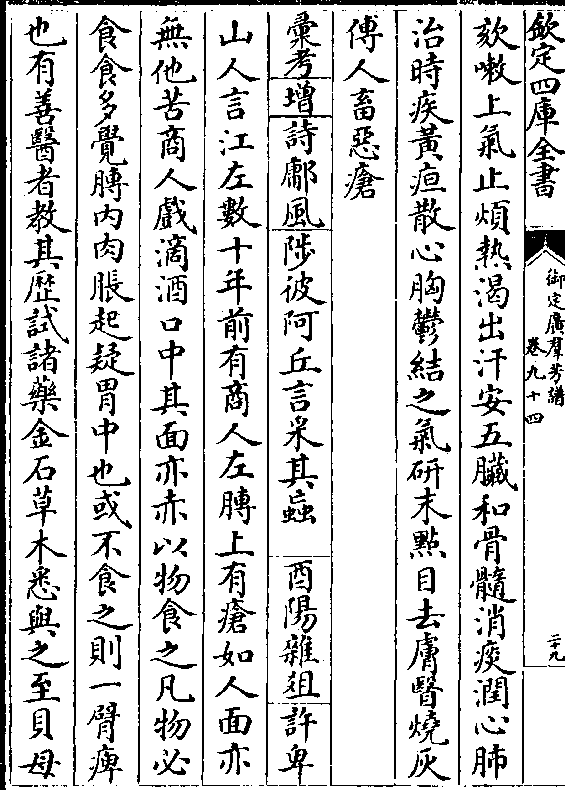 欽定四庫全書
御定廣羣芳譜
卷九十四
二十九
欬嗽上氣止煩熱渴出汗安五臟和骨髓消痰潤心肺
治時疾黃疸散心胸鬱結之氣研末點目去膚翳燒灰
傅人畜惡瘡
彚考增詩鄘風陟彼阿丘言采其蝱　酉陽雜俎許卑
山人言江左數十年前有商人左膊上有瘡如人面亦
無他苦商人戲滴酒口中其面亦赤以物食之凡物必
食食多覺膊內肉脹起疑胃中也或不食之則一臂痺
也有善醫者教其歷試諸藥金石草木悉與之至貝母